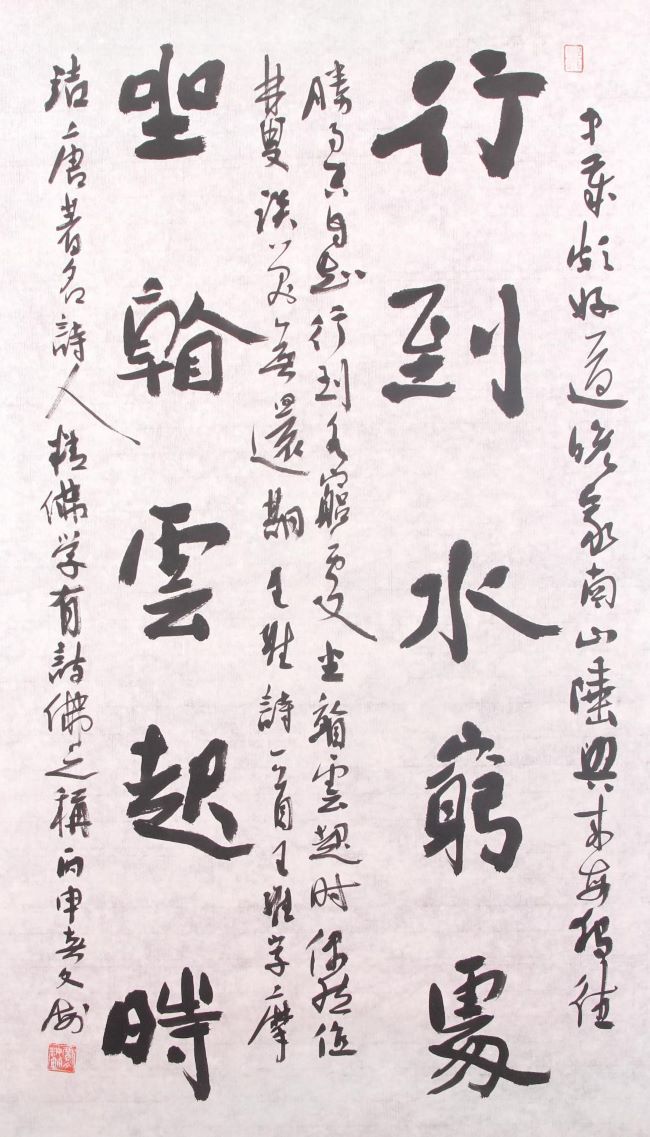 中歲頗好道晚家南山陲興來每獨往
行到水窮處
勝事空自知行到水窮處坐看雲起时偶然值
林叟談笑無還期王維詩一首王維字摩
坐看雲起時
詰唐著名詩人精佛学有詩佛之稱丙申春文